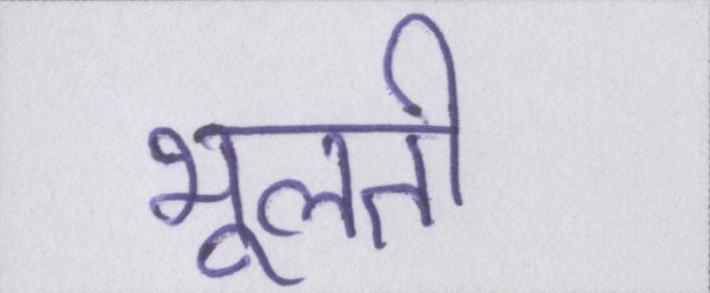 भूलती